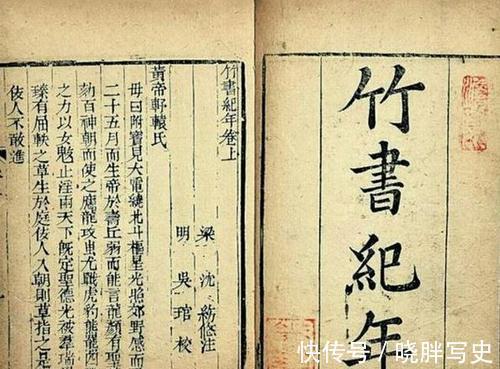 竹書紀年
竹書紀年卷上
梁 沈約附注
明 吳琯校
黃帝軒轅氏
母曰附寶見大電繞北斗樞星光照郊野感而
二十五月而生帝於壽丘弱而能言龍顏有聖
劾百神朝而使之應龍攻蚩尤戰虎豹熊羆
之力以女魃止淫雨天下既定聖德光被羣瑞
臻有屈軼之草生於庭佞人入朝則草指之
佞人不敢進
快传号/晓胖写史